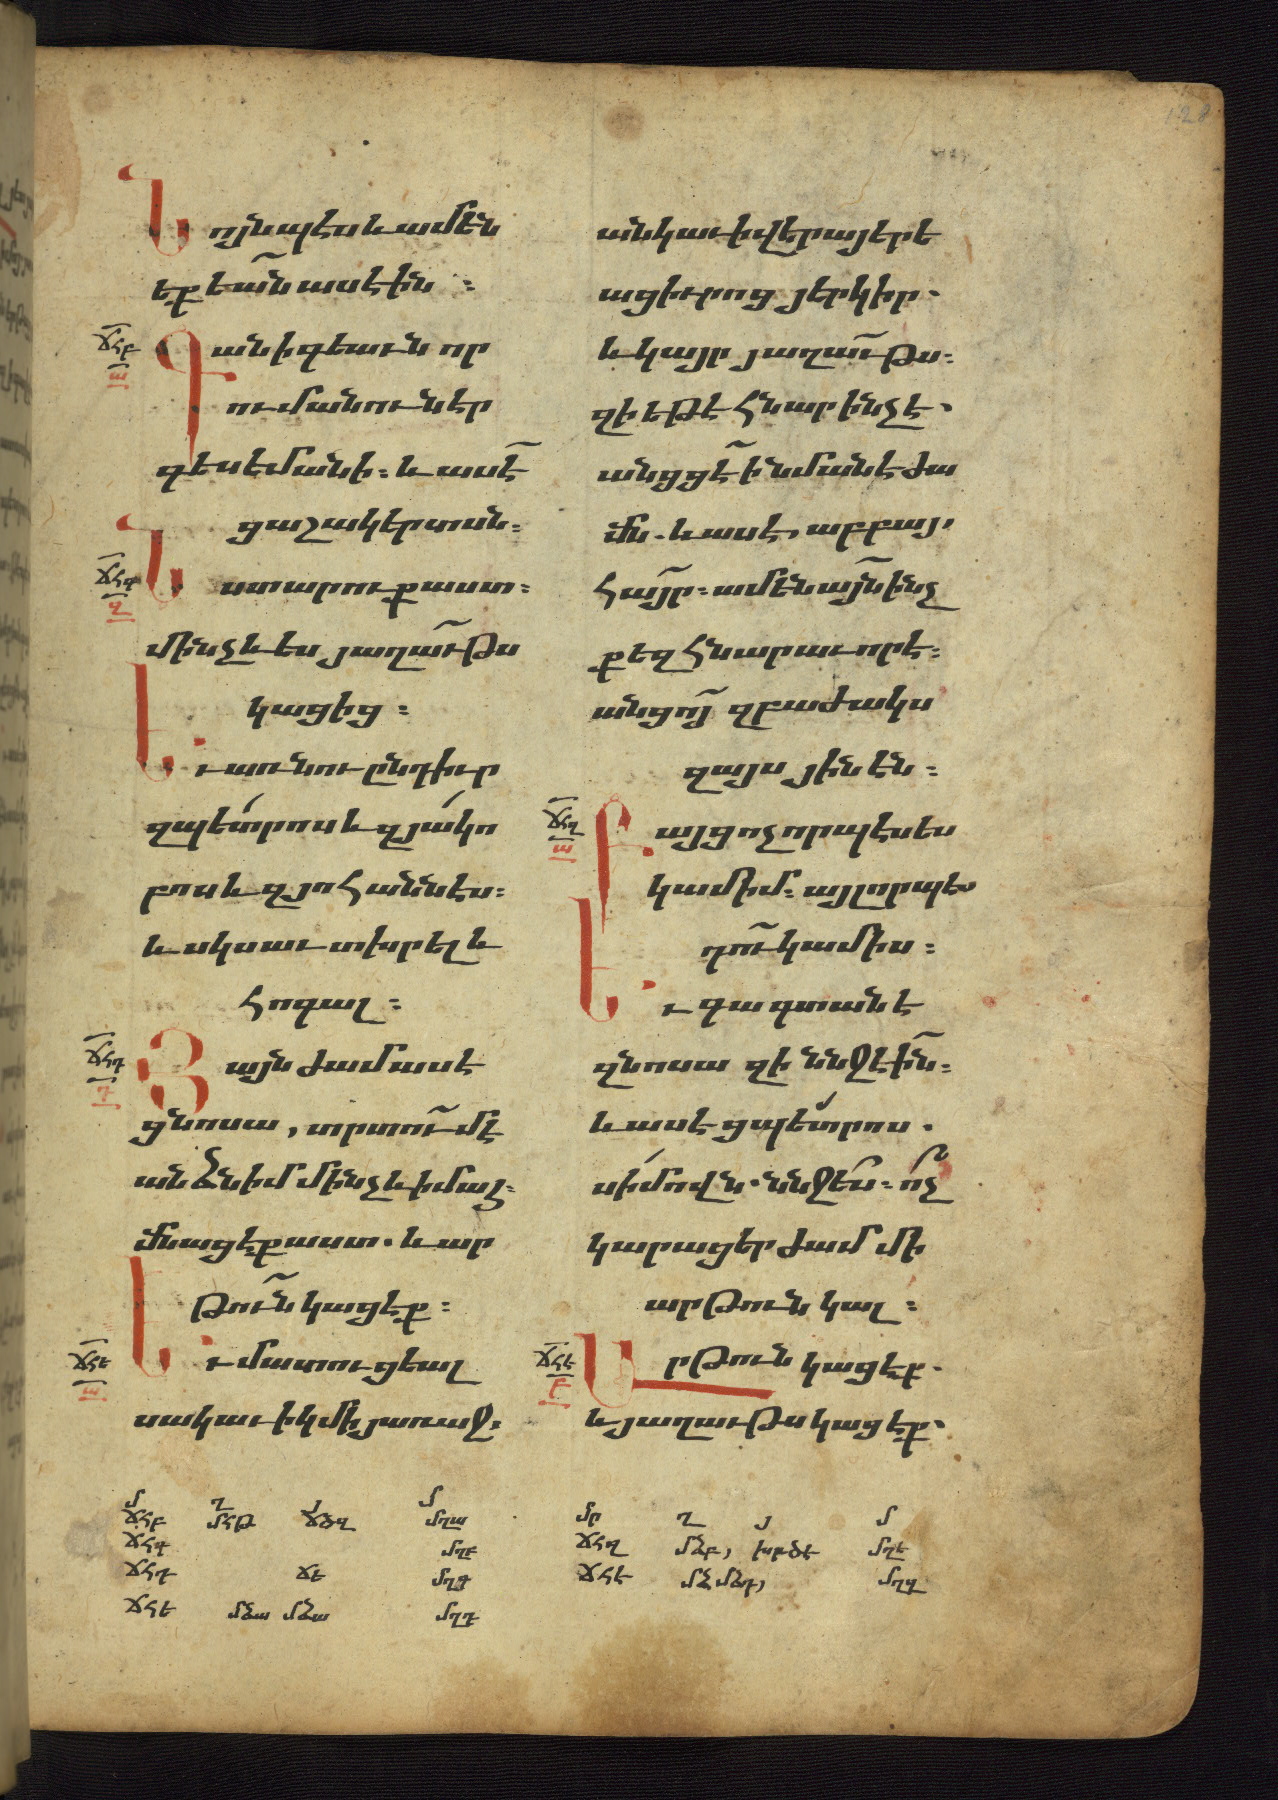 128
Նոյնպէս և ամէն
եքեան ասէին :
ՃՀԲ
Գան ի գեաւն որ
ում անուն էր
գեսեմանի : և ասէ
ցաշակերտսն :
ՃՀԳ
Նստարուք աստ :
մինչև ես յաղաւթս
կացից :
Եւ առնու ընդ իւր
զպետրոս և զյակո
բոս և զյոհաննէս :
և սկսաւ տխրել և
հոգալ :
ՃՀԴ
Դ
Յայնժամ ասէ
ցնոսա, տրտում է
անձն իմ մինչև ի մահ :
մնացէք աստ . և ար
թուն կացէք :
ՃՀԵ
Ա
Եւ մատուցեալ
սակաւիկ մի յառաջ :
անկաւ ի վերայ երե
սաց իւրոց յերկիր .
և կայր յաղաւթս :
զի եթէ հնար ինչ է .
անցցէ ի նմանէ ժա
մն . և ասէ, աբբայ,
հայր : ամենայն ինչ
քեզ հնարաւոր է :
անցո զբաժակս
զայս յինէն :
ՃՀԶ
Ա
Բայց ոչ որպէս ես
կամիմ : այլ որպէս
դու կամիս :
Եւ գա գտանէ
զնոսա զի ննջէին :
և ասէ ցպետրոս .
սիմովն . ննջես : ոչ
կարացեր ժամ մի
արթուն կալ :
ՃՀԷ
Բ
Արթուն կացէք .
և յաղաւթս կացէք .
մ ղ յ մ
ՃՀԲ ՄՀԹ ՃԾԶ ՄՂԱ
ՃՀԳ ՄՂԲ
ՃՀԴ ՃԷ ՄՂԳ
ՃՀԵ ՄՁԱ ՄՂԴ
մր ղ յ մ
ՃՀԶ ՄՁԲ, ՄՂԵ
ՃՀԷ ՄՁԴ, ՄՂԶ